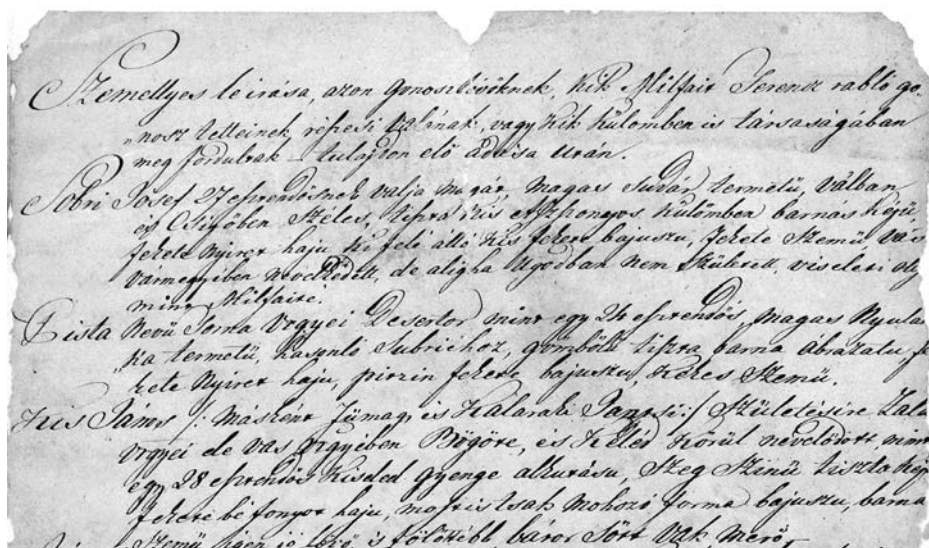 Személlyes leirása, azon gonosztévőknek, kik Milfait Ferencz rabló go-
nosz tetteinek részesi valának, vagy kik külömben is társaságában
meg fordultak – tulajdon elő adása után.
Sobri Jósef 27 esztendősnek vallja magát, magas sudár termetű, vállban
és Csipőben széles, tiszta kis Aszszonyos külömben barnás képű,
fekete nyirett haju ki felé álló kis fekete bajuszu, fekete szemű, Vas
vármegyében nevelkedett, de aligha Ugodban nem született, viseleti oly
mint Milfaité.
Pista nevü Torna Vrgyei Desertor, mint egy 24 esztendős, magas nyulán
ka termetű, hasonló Subrichoz, gömbölü tiszta barna ábrázatu, fe
kete nyirett haju, fekete bajuszu, kékes szemű.
Kis János /: másként és :/ születésire Zala
Vrgyei de Vas Vrgyében Bögöte, és Kéled körül nevelödött mint
egy 28 esztendős kisded gyenge alkotásu, szeg szinü tiszta kép
fekete bé fonyott haju, mostis tsak mohozó forma bajuszu, barna
szemű igen jó lövő, is fölöttébb bátor sőtt vak merő